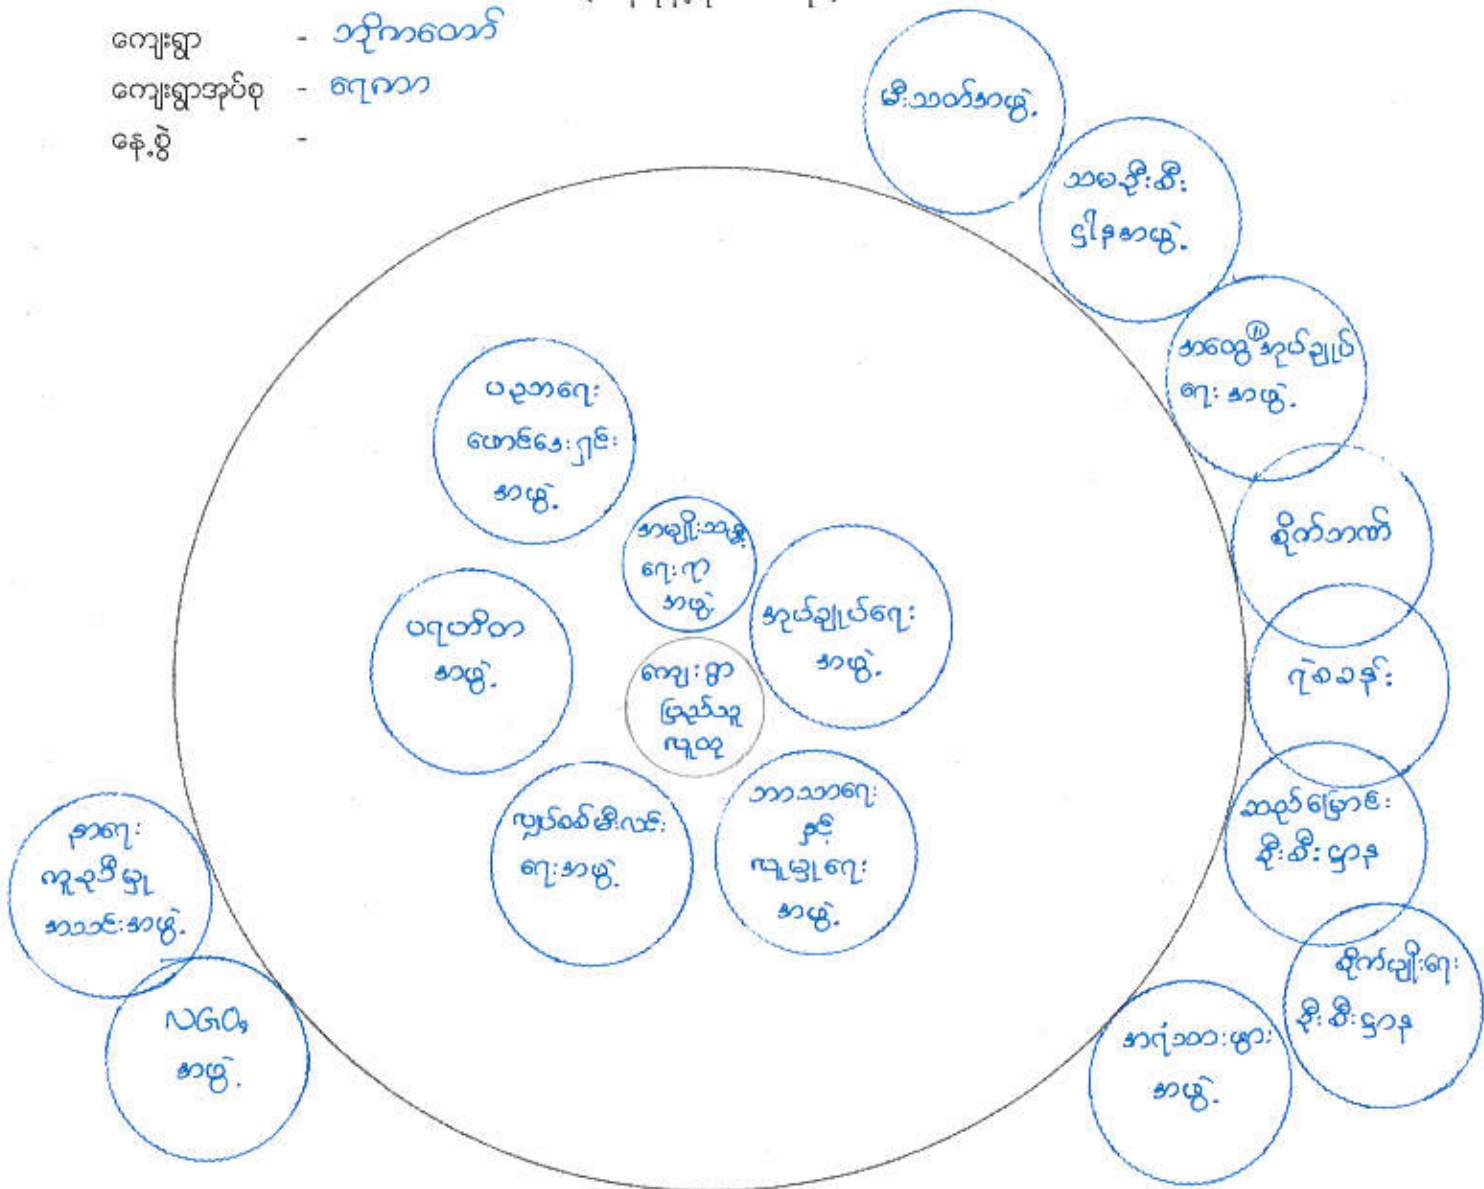 ကျေးရွာ - ဘိုကတော်
ကျေးရွာအုပ်စု - ရေကာ
နေ့စွဲ -
မီးသတ်အဖွဲ့
သမဦးစီး
ဌါနအဖွဲ့
အထွေထွေအုပ်ချုပ်
ရေးအဖွဲ့
စိုက်ဘဏ်
ရဲစခန်း
ဆည်မြောင်း
ဦးစီးဌာန
စိုက်ပျိုးရေး
ဦးစီးဌာန
အရံသားဖွား
အဖွဲ့
ပညာရေး
ဖောင်ဒေးရှင်း
အဖွဲ့
အမျိုးသမီး
ရေးရာ
အဖွဲ့
အုပ်ချုပ်ရေး
အဖွဲ့
ပရဟိတ
အဖွဲ့
ကျေးရွာ
ပြည်သူ
လူထု
လျှပ်စစ်မီးလင်း
ရေးအဖွဲ့
ဘာသာရေး
နှင့်
လူမှုရေး
အဖွဲ့
နာရေး
ကူညီမှု
အသင်းအဖွဲ့
NGOs
အဖွဲ့